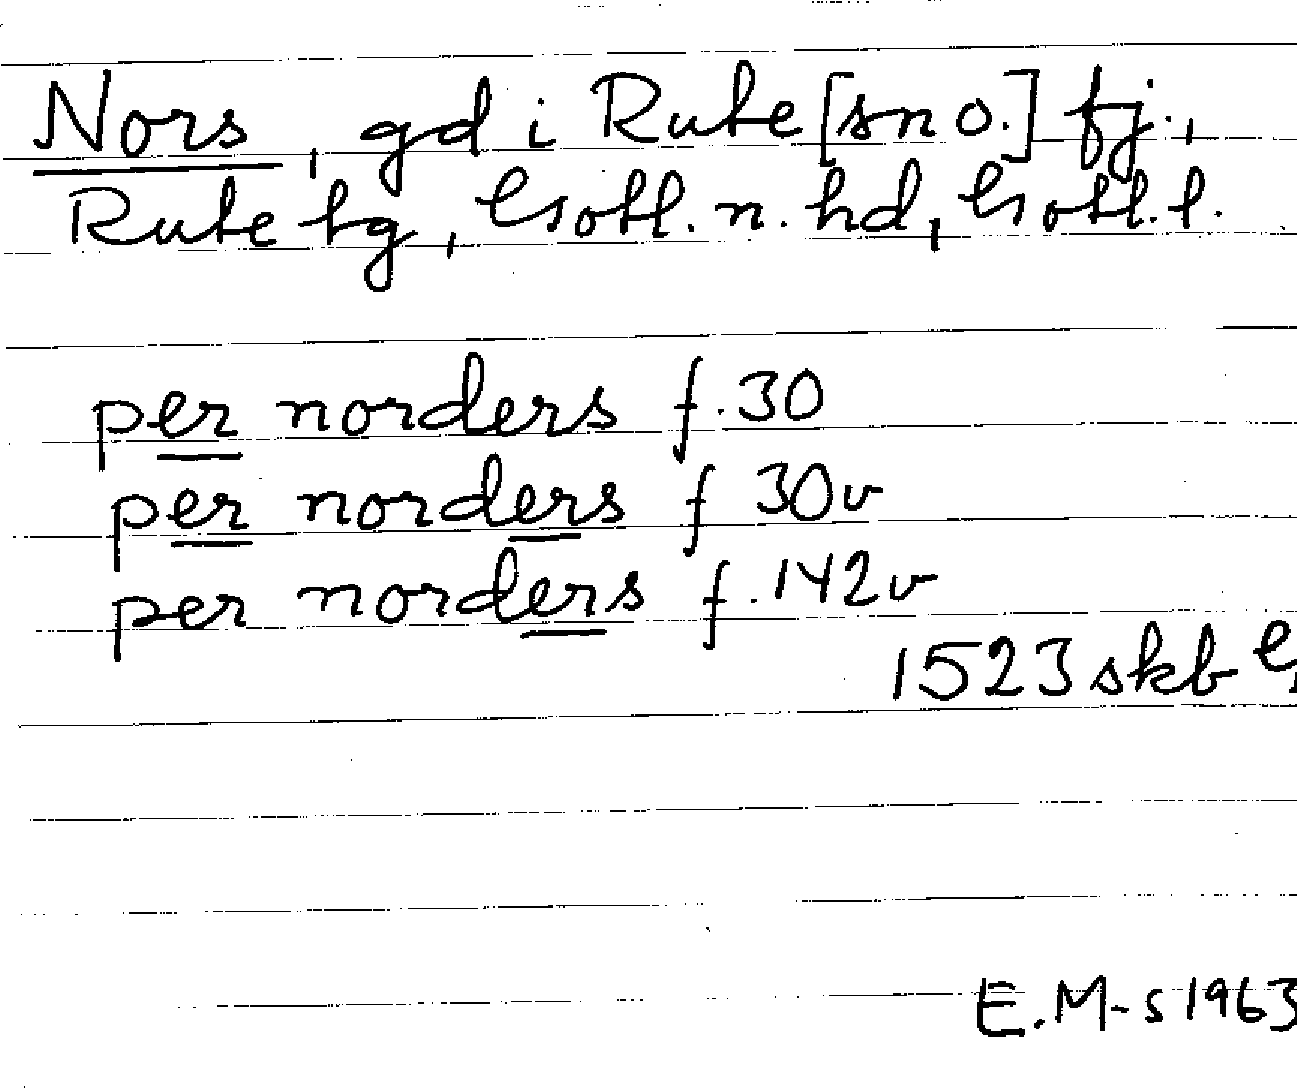 Nors, gd i Rute [sn o.] fj.,
Rute tg, Gotl. n. hd, Gotl. l.
per norders f. 30
per norders f 30v
per norders f. 142v
1523 skb G
E. M-s 1963